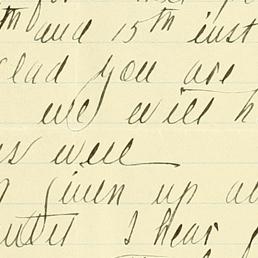 th and 15th inst
glad you are
we will h
is well
given up al
I hear